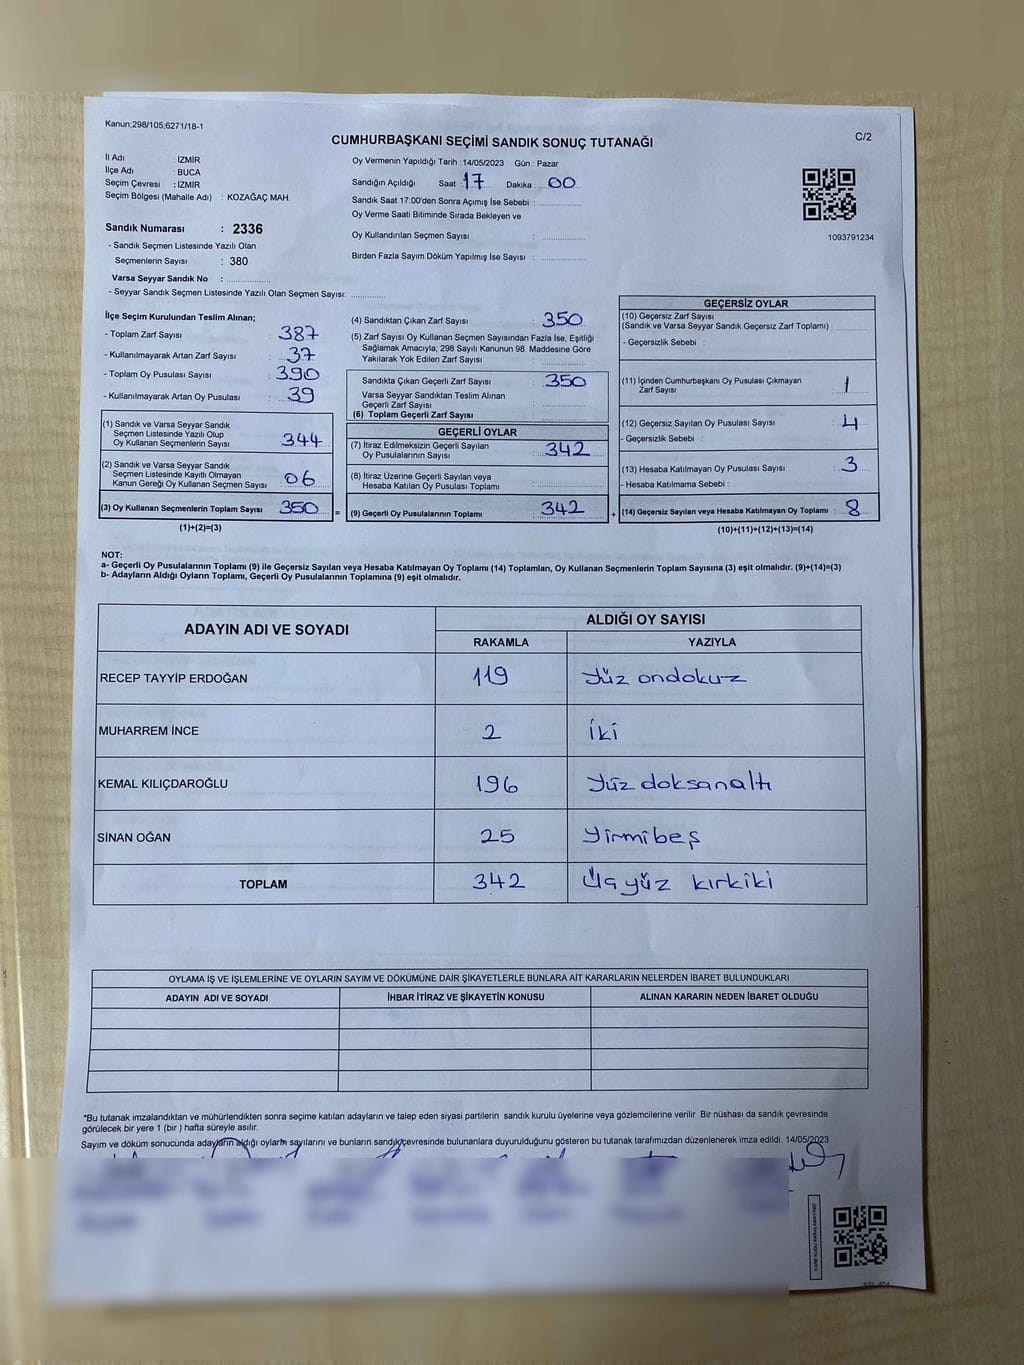 Kanun;298/105;6271/18-1
CUMHURBAŞKANI SEÇİMİ SANDIK SONUÇ TUTANAĞI
C/2
İl Adı : İZMİR
İlçe Adı : BUCA
Seçim Çevresi : İZMİR
Seçim Bölgesi (Mahalle Adı) : KOZAĞAÇ MAH.
Sandık Numarası : 2336
- Sandık Seçmen Listesinde Yazılı Olan
Seçmenlerin Sayısı : 380
Varsa Seyyar Sandık No :
- Seyyar Sandık Seçmen Listesinde Yazılı Olan Seçmen Sayısı:
Oy Vermenin Yapıldığı Tarih :14/05/2023 Gün : Pazar
Sandığın Açıldığı Saat : 17 Dakika : 00
Sandık Saat 17:00'den Sonra Açımış İse Sebebi :
Oy Verme Saati Bitiminde Sırada Bekleyen ve
Oy Kullandırılan Seçmen Sayısı :
Birden Fazla Sayım Döküm Yapılmış İse Sayısı :
1093791234
İlçe Seçim Kurulundan Teslim Alınan;
- Toplam Zarf Sayısı : 387
- Kullanılmayarak Artan Zarf Sayısı : 37
- Toplam Oy Pusulası Sayısı : 390
- Kullanılmayarak Artan Oy Pusulası : 39
(1) Sandık ve Varsa Seyyar Sandık
Seçmen Listesinde Yazılı Olup
Oy Kullanan Seçmenlerin Sayısı : 344
(2) Sandık ve Varsa Seyyar Sandık
Seçmen Listesinde Kayıtlı Olmayan
Kanun Gereği Oy Kullanan Seçmen Sayısı : 06
(3) Oy Kullanan Seçmenlerin Toplam Sayısı : 350
(1)+(2)=(3)
(4) Sandıktan Çıkan Zarf Sayısı : 350
(5) Zarf Sayısı Oy Kullanan Seçmen Sayısından Fazla İse, Eşitliği
Sağlamak Amacıyla; 298 Sayılı Kanunun 98. Maddesine Göre
Yakılarak Yok Edilen Zarf Sayısı :
Sandıkta Çıkan Geçerli Zarf Sayısı : 350
Varsa Seyyar Sandıktan Teslim Alınan
Geçerli Zarf Sayısı :
(6) Toplam Geçerli Zarf Sayısı :
GEÇERLİ OYLAR
(7) İtiraz Edilmeksizin Geçerli Sayılan
Oy Pusulalarının Sayısı : 342
(8) İtiraz Üzerine Geçerli Sayılan veya
Hesaba Katılan Oy Pusulası Toplamı :
= (9) Geçerli Oy Pusulalarının Toplamı : 342 +
GEÇERSİZ OYLAR
(10) Geçersiz Zarf Sayısı
(Sandık ve Varsa Seyyar Sandık Geçersiz Zarf Toplamı) :
- Geçersizlik Sebebi :
(11) İçinden Cumhurbaşkanı Oy Pusulası Çıkmayan
Zarf Sayısı : 1
(12) Geçersiz Sayılan Oy Pusulası Sayısı : 4
- Geçersizlik Sebebi :
(13) Hesaba Katılmayan Oy Pusulası Sayısı : 3
- Hesaba Katılmama Sebebi :
(14) Geçersiz Sayılan veya Hesaba Katılmayan Oy Toplamı : 8
(10)+(11)+(12)+(13)=(14)
NOT:
a- Geçerli Oy Pusulalarının Toplamı (9) ile Geçersiz Sayılan veya Hesaba Katılmayan Oy Toplamı (14) Toplamları, Oy Kullanan Seçmenlerin Toplam Sayısına (3) eşit olmalıdır. (9)+(14)=(3)
b- Adayların Aldığı Oyların Toplamı, Geçerli Oy Pusulalarının Toplamına (9) eşit olmalıdır.
ADAYIN ADI VE SOYADI ALDIĞI OY SAYISI
RAKAMLA YAZIYLA
RECEP TAYYİP ERDOĞAN 119 Yüz ondokuz
MUHARREM İNCE 2 İki
KEMAL KILIÇDAROĞLU 196 Yüz doksanaltı
SİNAN OĞAN 25 Yirmibeş
TOPLAM 342 Üçyüz kırkiki
OYLAMA İŞ VE İŞLEMLERİNE VE OYLARIN SAYIM VE DÖKÜMÜNE DAİR ŞİKAYETLERLE BUNLARA AİT KARARLARIN NELERDEN İBARET BULUNDUKLARI
ADAYIN ADI VE SOYADI İHBAR İTİRAZ VE ŞİKAYETİN KONUSU ALINAN KARARIN NEDEN İBARET OLDUĞU
*Bu tutanak imzalandıktan ve mühürlendikten sonra seçime katılan adayların ve talep eden siyasi partilerin sandık kurulu üyelerine veya gözlemcilerine verilir. Bir nüshası da sandık çevresinde
görülecek bir yere 1 (bir ) hafta süreyle asılır.
Sayım ve döküm sonucunda adayların aldığı oyların sayılarını ve bunların sandık çevresinde bulunanlara duyurulduğunu gösteren bu tutanak tarafımızdan düzenlenerek imza edildi. 14/05/2023